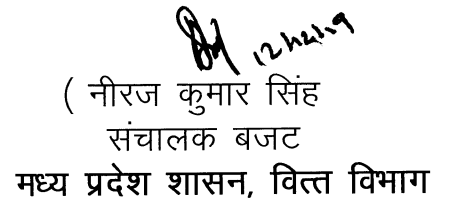 ( नीरज कुमार सिंह
संचालक बजट
मध्य प्रदेश शासन, वित्त विभाग